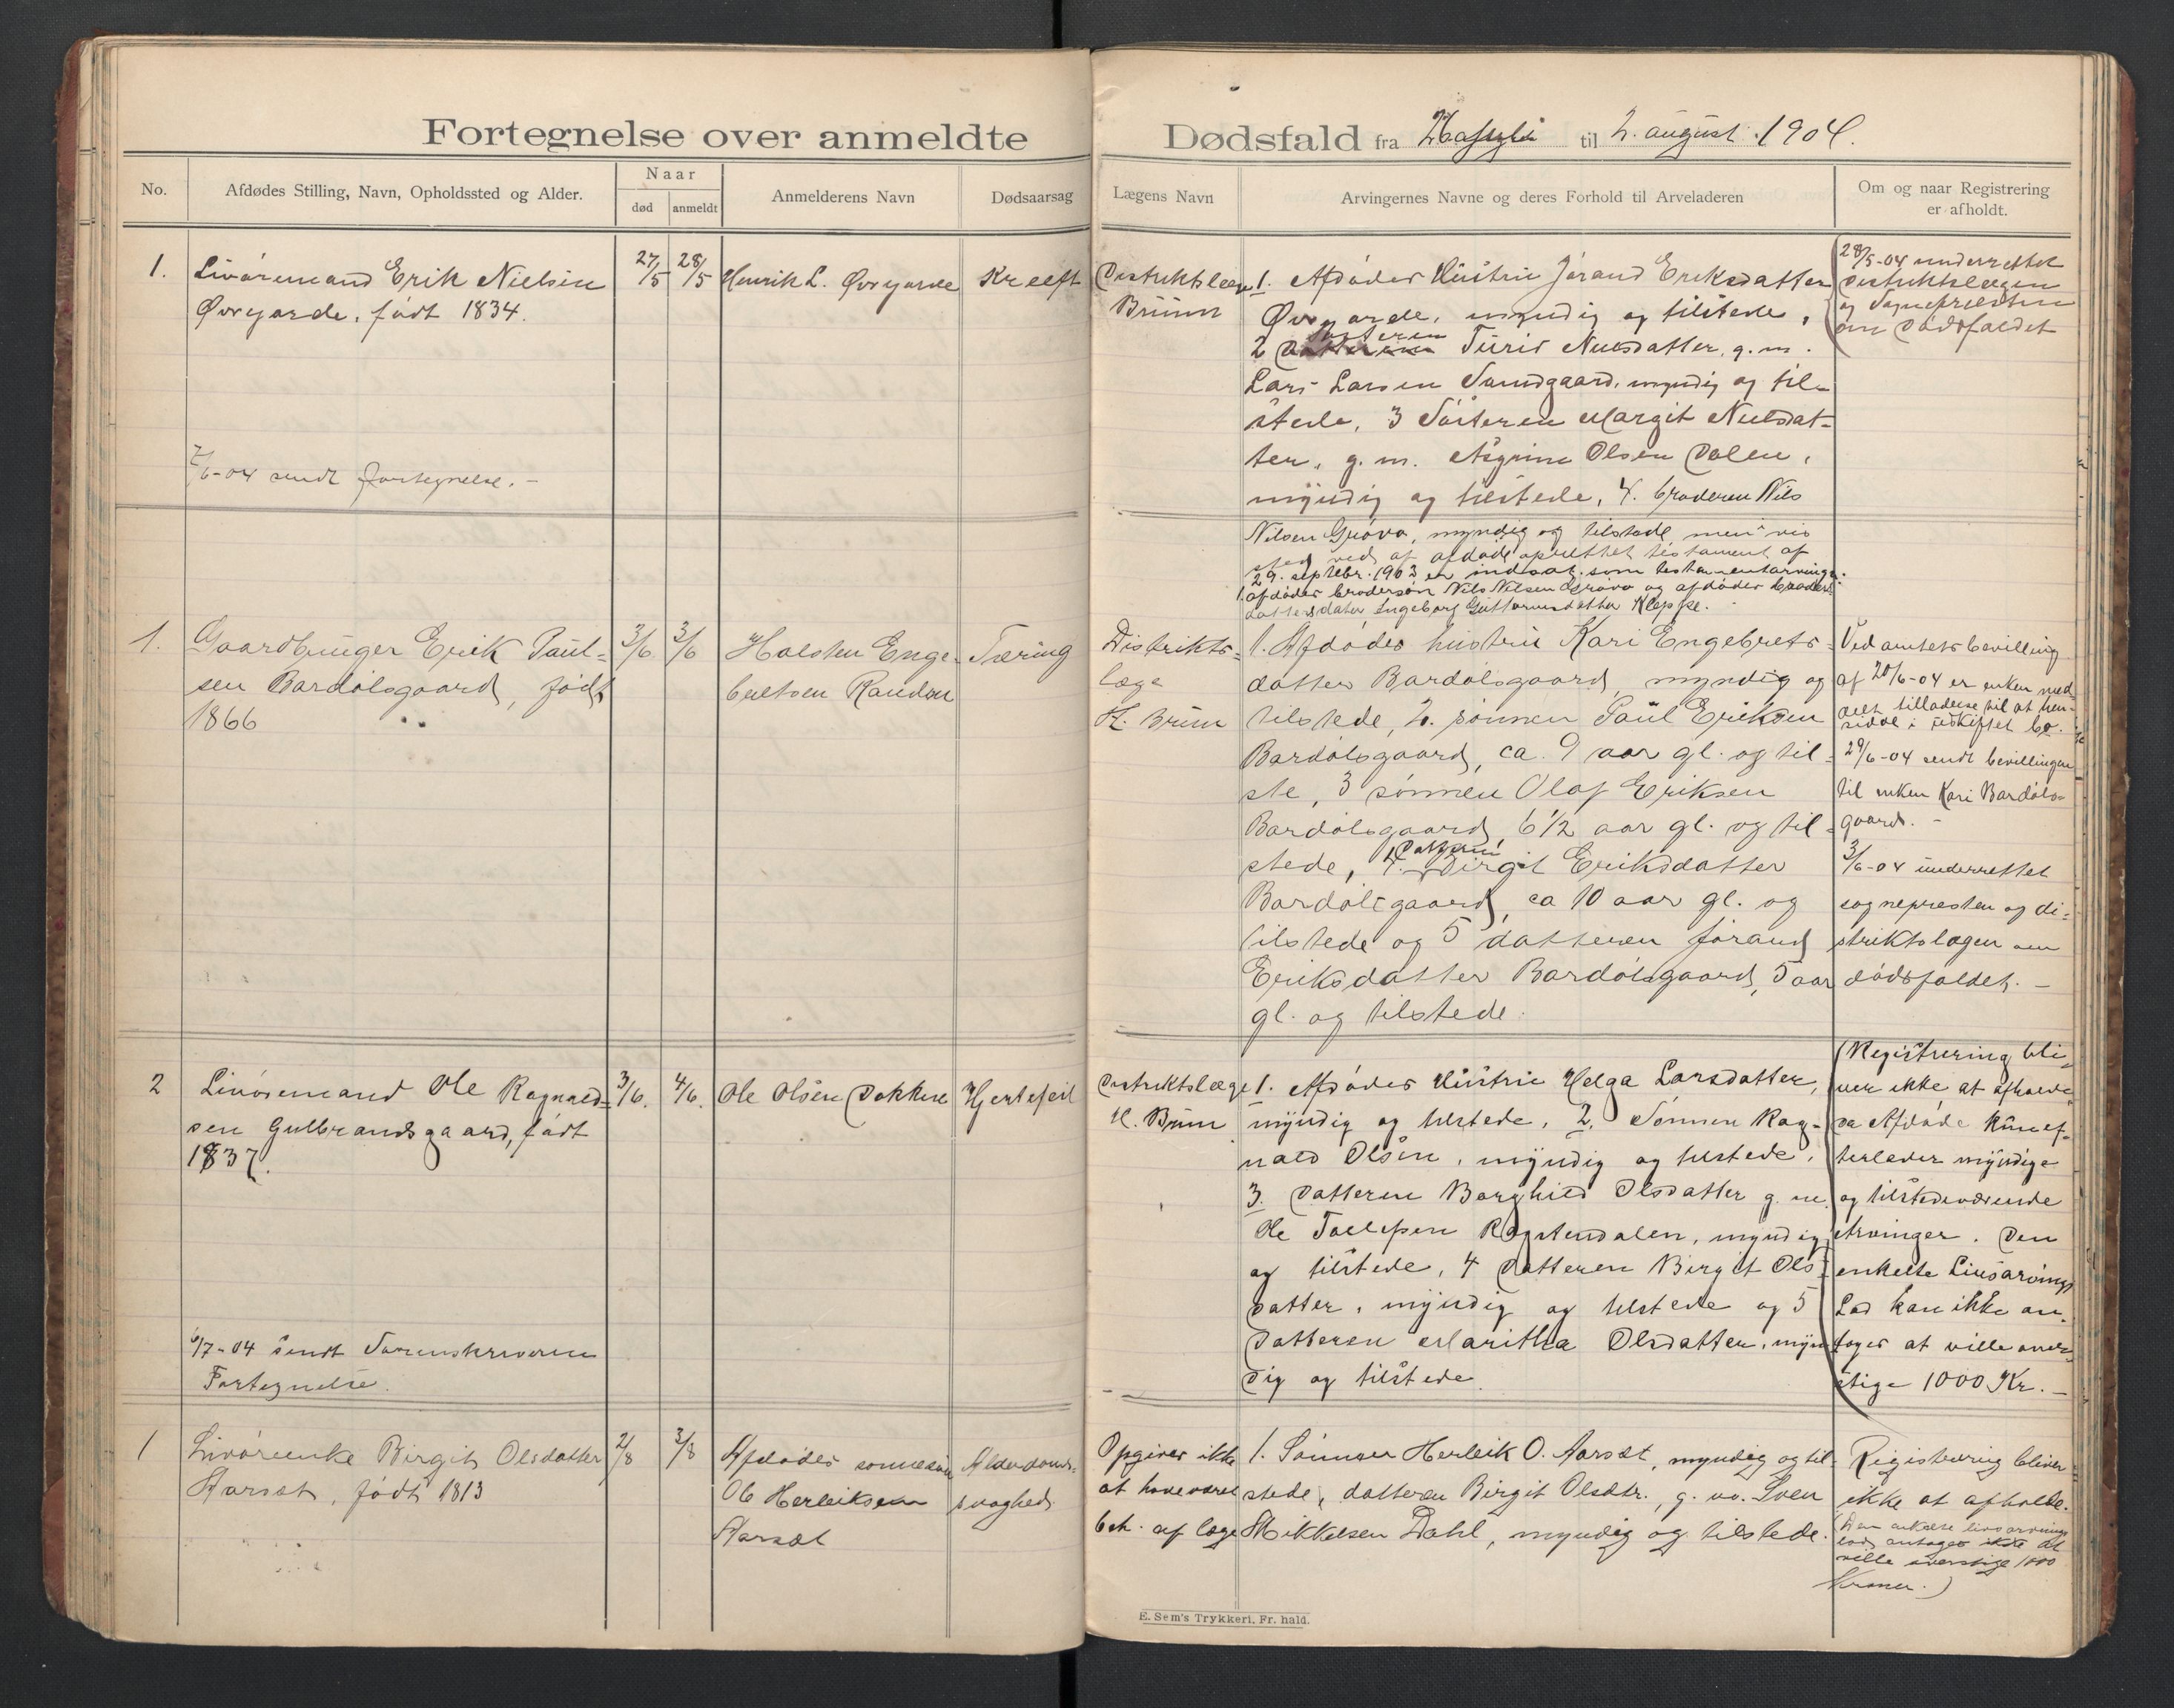 Fortegnelse over anmeldte Dødsfald fra til 2. august 1904.
No.
Afdødes Stilling, Navn, Opholdssted og Alder.
Naar
død
anmeldt
Anmelderens Navn
Dødsaarsag
Lægens Navn
Arvingernes Navne og deres Forhold til Arveladeren
Om og naar Registrering
er afholdt.
1.
Livøremand Erik Nielsen
Øvregarde, født 1834.
27/5
28/5
Henrik L. Øvregarde
Kræft
Distriktslæge
Brünn
1. Afdødes Hustru Jørand Eriksdatter
Øvregarde, myndig og tilstede,
2 Søsteren Turid Nielsdatter, g. m.
Lars Larsen Sundgaard, myndig og til-
stede, 3 Søsteren Margit Nielsdat-
ter, g. m. Asgrim Olsen Dalen,
myndig og tilstede, 4. broderen Nils
Nilsen Grøvo, myndig og tilstede, men
ved af afdøde oprettet testament af
29. septebr. 1903 er indsat som testamentarvinge:
1. afdødes brodersøn Nils Nilsen Grøvo og afdødes broders
dattersdatter Ingeborg Guttormsdatter Kleppe.
28/5-04 underrettet
Distriktslægen
og Sognepræsten
om Dødsfaldet
7/6-04 sendt fortegnelse. -
1.
Gaardbruger Erik Paul-
sen Bardølsgaard, født
1866
3/6
3/6
Halsten Enge-
bretsen Randen
Tæring
Distrikts-
læge
K. Brün
1. Afdødes hustru Kari Engebrets-
datter Bardølsgaard, myndig og
tilstede, 2. sønnen Paul Eriksen
Bardølsgaard, ca. 9 aar gl. og til-
ste, 3 sønnen Olaf Eriksen
Bardølsgaard, 6 1/2 aar gl. og til-
stede, 4. datteren Birgit Eriksdatter
Bardølsgaard, ca 10 aar gl. og
tilstede og 5 datteren Jørand
Eriksdatter Bardølsgaard, 5 aar
gl. og tilstede.
Ved amtets bevilling
af 20/6-04 er enken med-
delt tilladelse til at hen-
sidde i uskiftet bo.
29/6-04 sendt bevillingen
til enken Kari Bardøls-
gaard. -
3/6-04 underrettet
sognepresten og di-
striktslægen om
dødsfaldet. -
2
Livøremand Ole Ragnald-
sen Gulbrandsgaard, født
1837.
3/6.
4/6.
Ole Olsen Dokken
Hjertefeil
Distriktslæge
K. Brün
1. Afdødes Hustru Helga Larsdatter,
myndig og tilstede, 2. Sønnen Rag-
nald Olsen, myndig og tilstede,
3. Datteren Borghild Olsdatter g. m.
Ole Tollefsen myndig
og tilstede, 4 Datteren Birgit Ols-
datter, myndig og tilstede og 5
Datteren Maritha Olsdatter, myn-
dig og tilstede
Registrering bli-
ver ikke at afholde
da Afdøde kun ef-
terlader myndige
og tilstedeværende
Arvinger. Den
enkelte Livsarvings
Lod kan ikke an-
tages at ville over-
stige 1000 Kr. -
6/7-04 sendt Sorenskriveren
Fortegnelse.
1
Livøreenke Birgit Olsdatter
Aarset, født 1813
2/8
3/8
Afdødes sønnesøn
Ole Herleiksen
Aarset
Alderdoms-
svaghed
Opgives ikke
at have været
beh. af læge
1. Sønnen Herleik O. Aarset, myndig og til-
stede, datteren Birgit Olsdtr., g. m. Sven
Mikkelsen Dahl, myndig og tilstede.
Registrering bliver
ikke at afholde.
(Den enkelte livsarvings
lod antages ikke at
ville overstige 1000
Kroner.)
E. Sem's Trykkeri, Fr. hald.